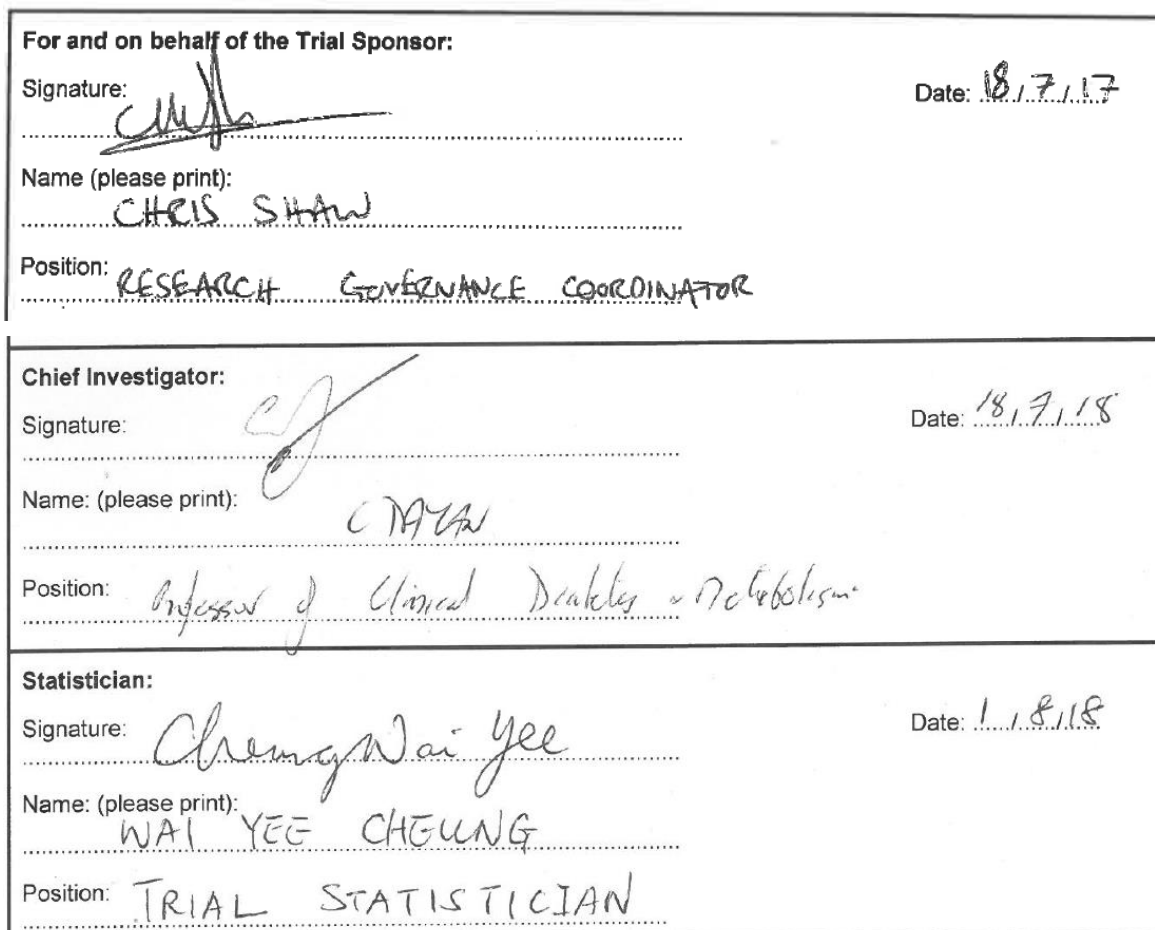 For and on behalf of the Trial Sponsor:
Signature: Date: 18/7/17
Name (please print):
CHRIS SHAW
Position: RESEARCH GOVERNANCE COORDINATOR
Chief Investigator:
Signature: Date: 18/7/18
Name: (please print):
C DAYAN
Position: Professor of Clinical Diabetes & Metabolism
Statistician:
Signature: Cheung Wai Yee Date: 1/8/18
Name: (please print):
WAI YEE CHEUNG
Position: TRIAL STATISTICIAN